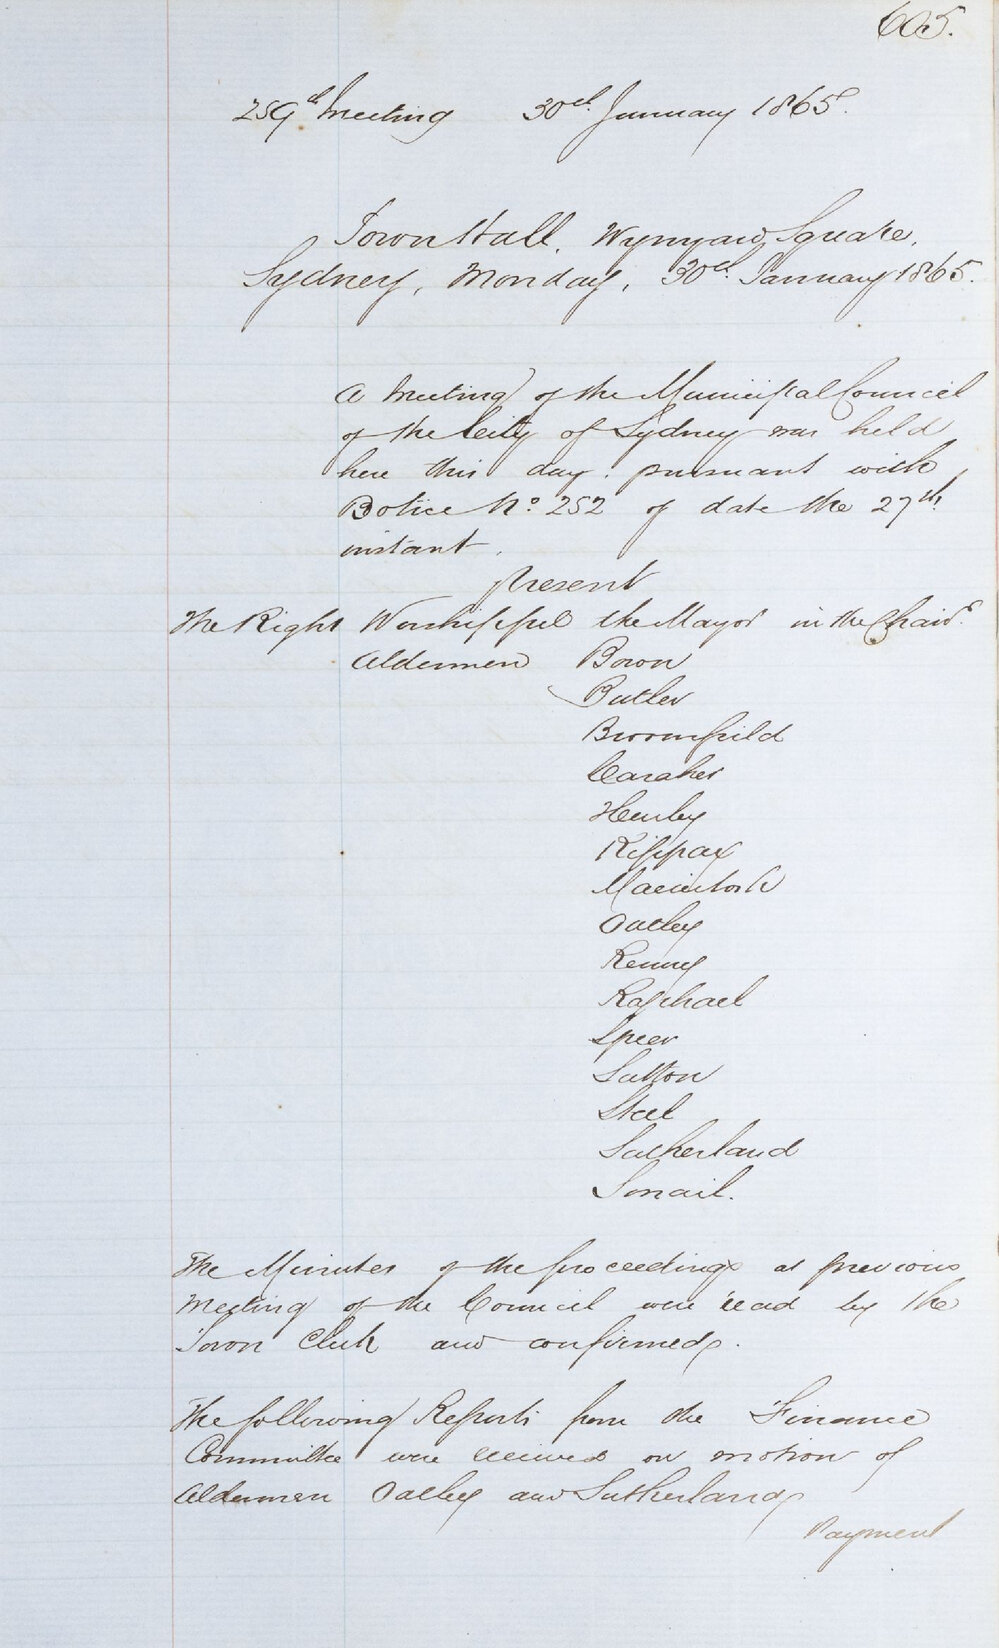 605.
259th Meeting 30th January 1865.
Town Hall, Wynyard Square,
Sydney, Monday, 30th January 1865.
A Meeting of the Municipal Council
of the City of Sydney was held
here this day, pursuant with
Notice No. 252 of date the 27th
instant.
present
The Right Worshipful the Mayor in the Chair.
Aldermen Bown
Butler
Broomfield
Caraher
Henley
Kippax
Macintosh
Oatley
Renny
Raphael
Speer
Sutton
Steel
Sutherland
Smail.
The Minutes of the proceedings at previous
Meeting of the Council were read by the
Town Clerk and confirmed.
The following Reports from the Finance
Committee were received on motion of
Aldermen Oatley and Sutherland
Payment